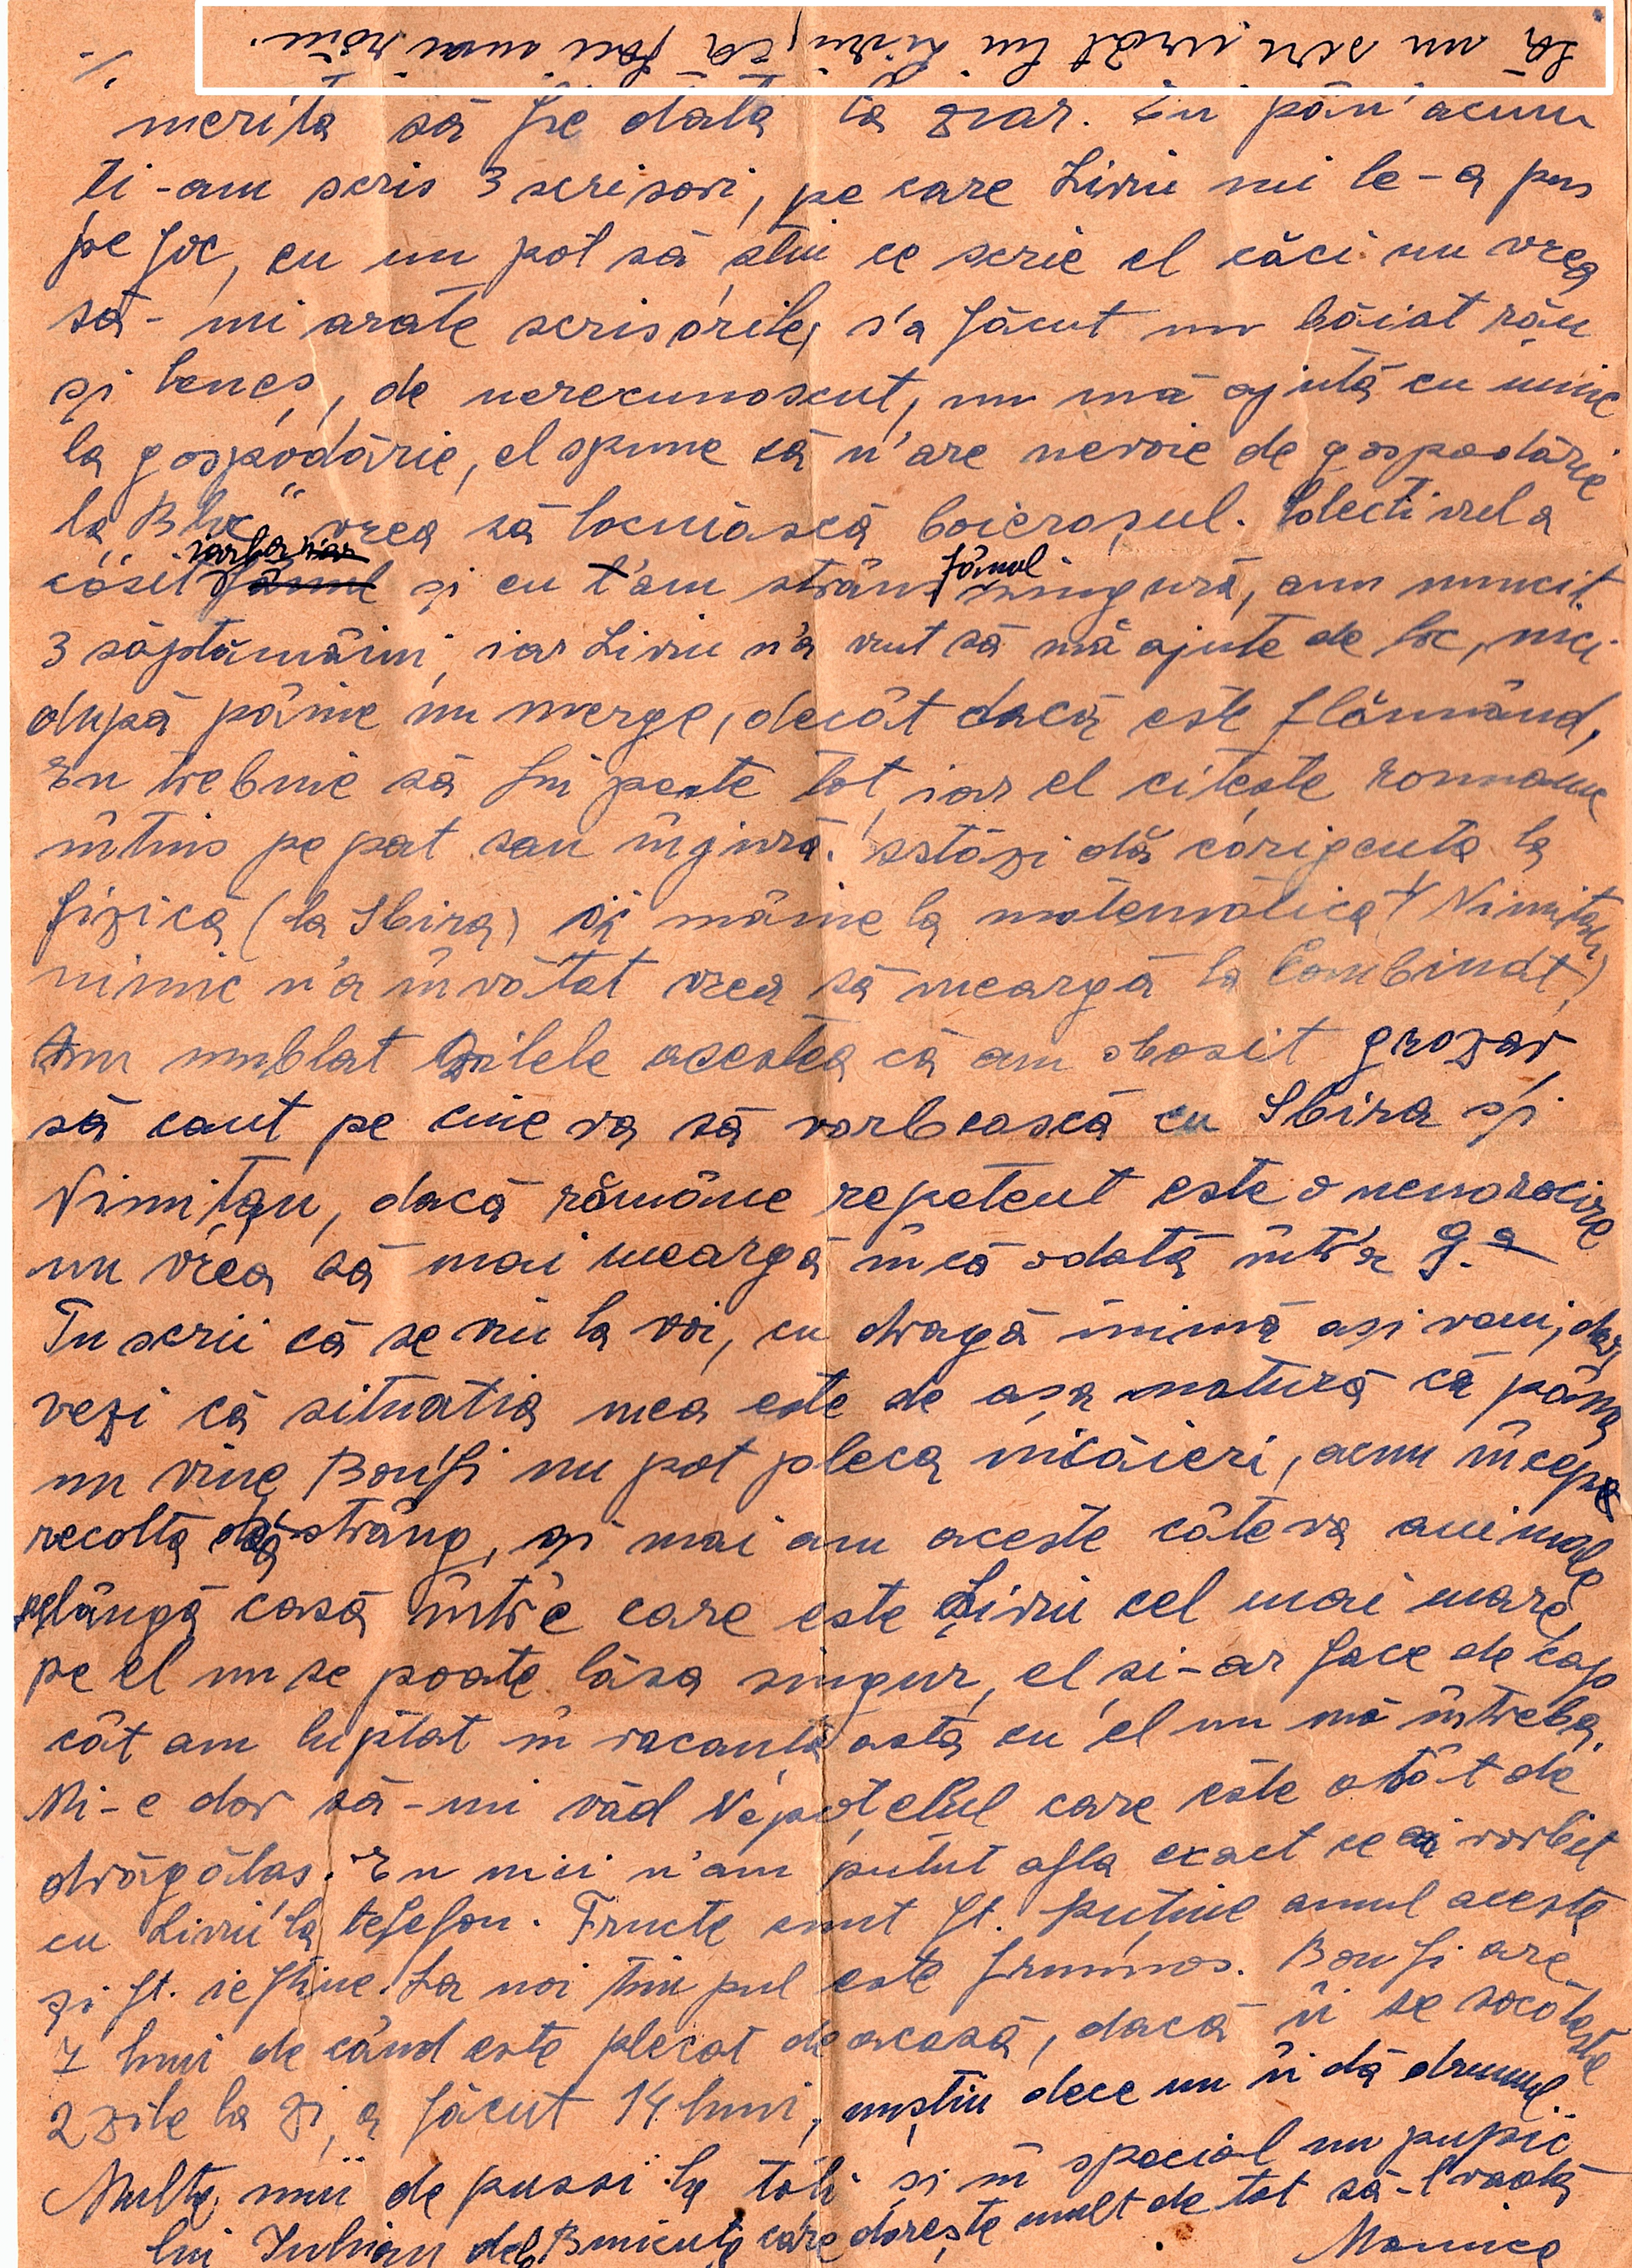 Să nu scrii urât lui Liviu, că faci mai rău.
./.
merită să fie dată la ziar. Eu pân'acum
ți-am scris 3 scrisori, pe care Liviu mi le-a pus
pe foc, eu nu pot să știu ce scrie el căci nu vrea
să-mi arate scrisorile, s'a făcut un băiat rău
și leneș, de nerecunoscut, nu mă ajută cu nimic
la gospodărie, el spune că n'are nevoie de gospodărie
la "Bloc" vrea să locuiască boierosul. Colectivul a
cosit iarba și eu l'am strâns fânul singură, am muncit
3 săptămâini, iar Liviu n'a vrut să mă ajute de loc, nici
după pâine nu merge, decât dacă este flămând,
Eu trebuie să fiu peste tot, iar el citește romane
întins pe pat sau înjură. Astăzi dă corigența la
fizică (la Sbira) și mâine la matematică (Nimițan)
nimic n'a învățat vrea să meargă la Combinat,
Am umblat zilele acestea că am obosit grozav,
să caut pe cineva să vorbească cu Sbira și
Nimițan, dacă rămâne repetent este o nenorocire
nu vrea să mai meargă încă odată într'a 9.a
Tu scrii că se viu la voi, cu dragă inimă ași veni, dar
vezi că situația mea este de așa natură că până
nu vine Bonfi nu pot pleca nicăieri, acum începe
recolta să strâng, și mai am aceste câteva animale
pelângă casă între care este Liviu cel mai mare,
pe el nu se poate lăsa singur, el și-ar face de cap
cât am luptat în vacanța asta cu el nu mă întreba.
Mi-e dor să-mi văd Nepoțelul care este atât de
drăgălaș. Eu nici n'am putut afla exact ce ai vorbit
cu Liviu la telefon. Fructe sunt ft. puține anul acesta
și ft. ieftine. La noi timpul este frumos. Bonfi are
7 luni de când este plecat de acasă, dacă îi se socotește
2 zile la zi, a făcut 14 luni, nuștiu dece nu îi dă drumul.
Multe mii de pussi la toți și în special un pupic
lui Iulian dela Bunicuța care dorește mult de tot să-l vadă
Manica